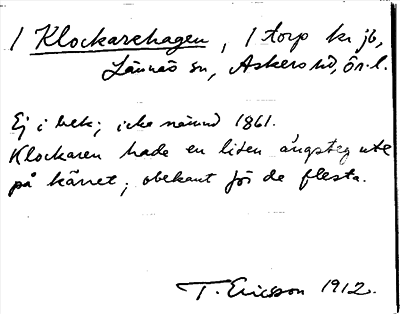 / Klockarehagen, / torp kr jb,
Lännäs sn, Askers hd, Ör. l.
Ej i bek; icke nämnd 1861.
Klockaren hade en liten ängsteg ute
på kärret; obekant för de flesta.
T. Ericsson 1912.